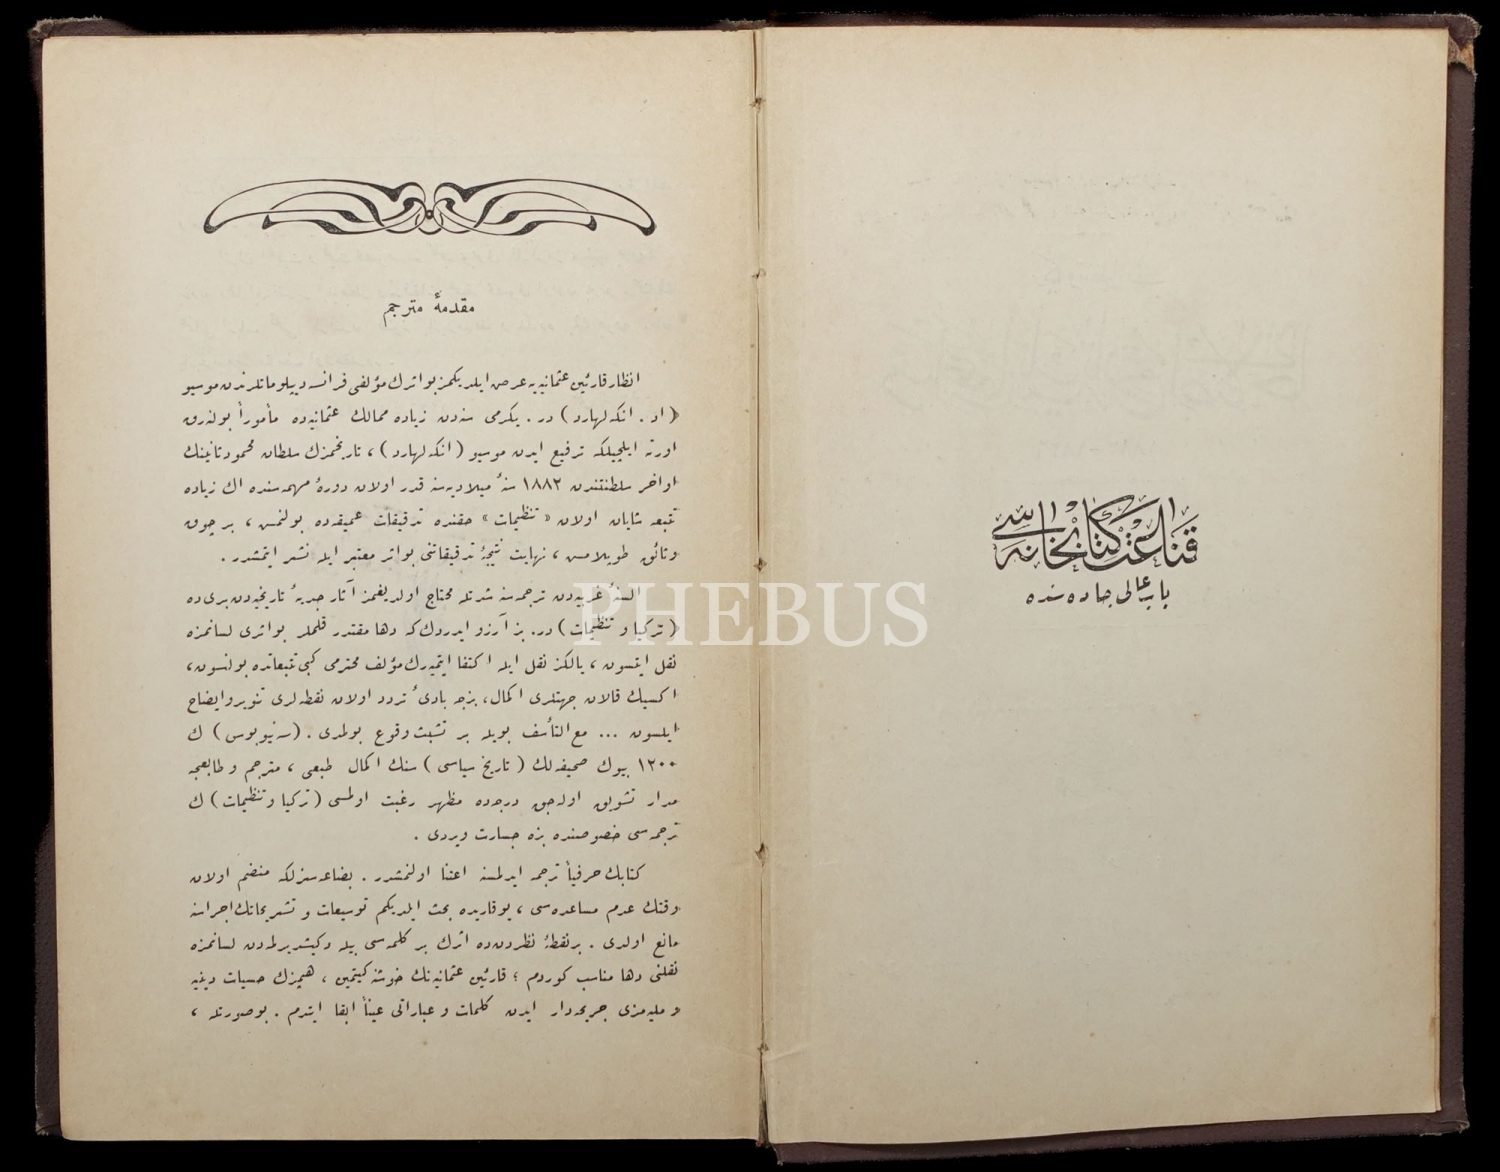 قناعت كتابخانه سی
باب عالی جاده سنده
مقدمۀ مترجم
انظار قارئین عثمانیه یه عرض ایلدیكمز بو اثرك مؤلفی فرانسه دیپلوماتلرندن موسیو
( اد . انكه لهارد ) در . یكرمی سنه دن زیاده ممالك عثمانیه ده مأموراً بولنه رق
اورته ایلچیلكه ترفیع ایدن موسیو ( انكه لهارد ) ، تاریخمزك سلطان محمود ثانینك
اواخر سلطنتندن ١٨٨٢ سنۀ میلادیه سنه قدر اولان دورۀ مهمه سنده اك زیاده
تتبعه شایان اولان « تنظیمات » حقنده تدقیقات عمیقه ده بولنمش ، بر چوق
وثائق طوپلامش ، نهایت نتیجۀ تدقیقاتنی بو اثر معتبر ایله نشر ایتمشدر .
السنۀ غربیه دن ترجمه سنه شدتله محتاج اولدیغمز آثار جدیۀ تاریخیه دن بری ده
( تركیا و تنظیمات ) در. بز آرزو ایدردك كه دها مقتدر قلملر بو اثری لسانمزه
نقل ایتسون ، یالكز نقل ایله اكتفا ایتمیه رك مؤلف محترمی كبی تتبعاتده بولنسون،
اكسیك قالان جهتلری اكمال، بزجه بادئ تردد اولان نقطه لری تنویر و ایضاح
ایلسون ... مع التأسف بویله بر تشبث وقوع بولمدی . (سه نیوبوس) ك
١٢٠٠ بیوك صحیفه لك ( تاریخ سیاسی ) سنك اكمال طبعی ، مترجم و طابعجه
مدار تشویق اوله جق درجه ده مظهر رغبت اولمسی (تركیا و تنظیمات) ك
ترجمه سی خصوصنده بزه جسارت ویردی .
كتابك حرفیاً ترجمه ایدلمسنه اعتنا اولنمشدر . بضاعه سزلكه منضم اولان
وقتك عدم مساعده سی ، یوقاریده بحث ایلدیكم توسیعات و تشریحاتك اجراسنه
مانع اولدی . بر نقطۀ نظردن ده اثرك بر كلمه سی بیله دكیشدیرلمه دن لسانمزه
نقلنی دها مناسب كوردم ؛ قارئین عثمانیه نك خوشنه كیتمین ، هپمزك حسیات دینیه
و ملیه مزی جریحه دار ایدن كلمات و عباراتی عیناً ابقا ایتدم . بو صورتله ،
PHEBUS